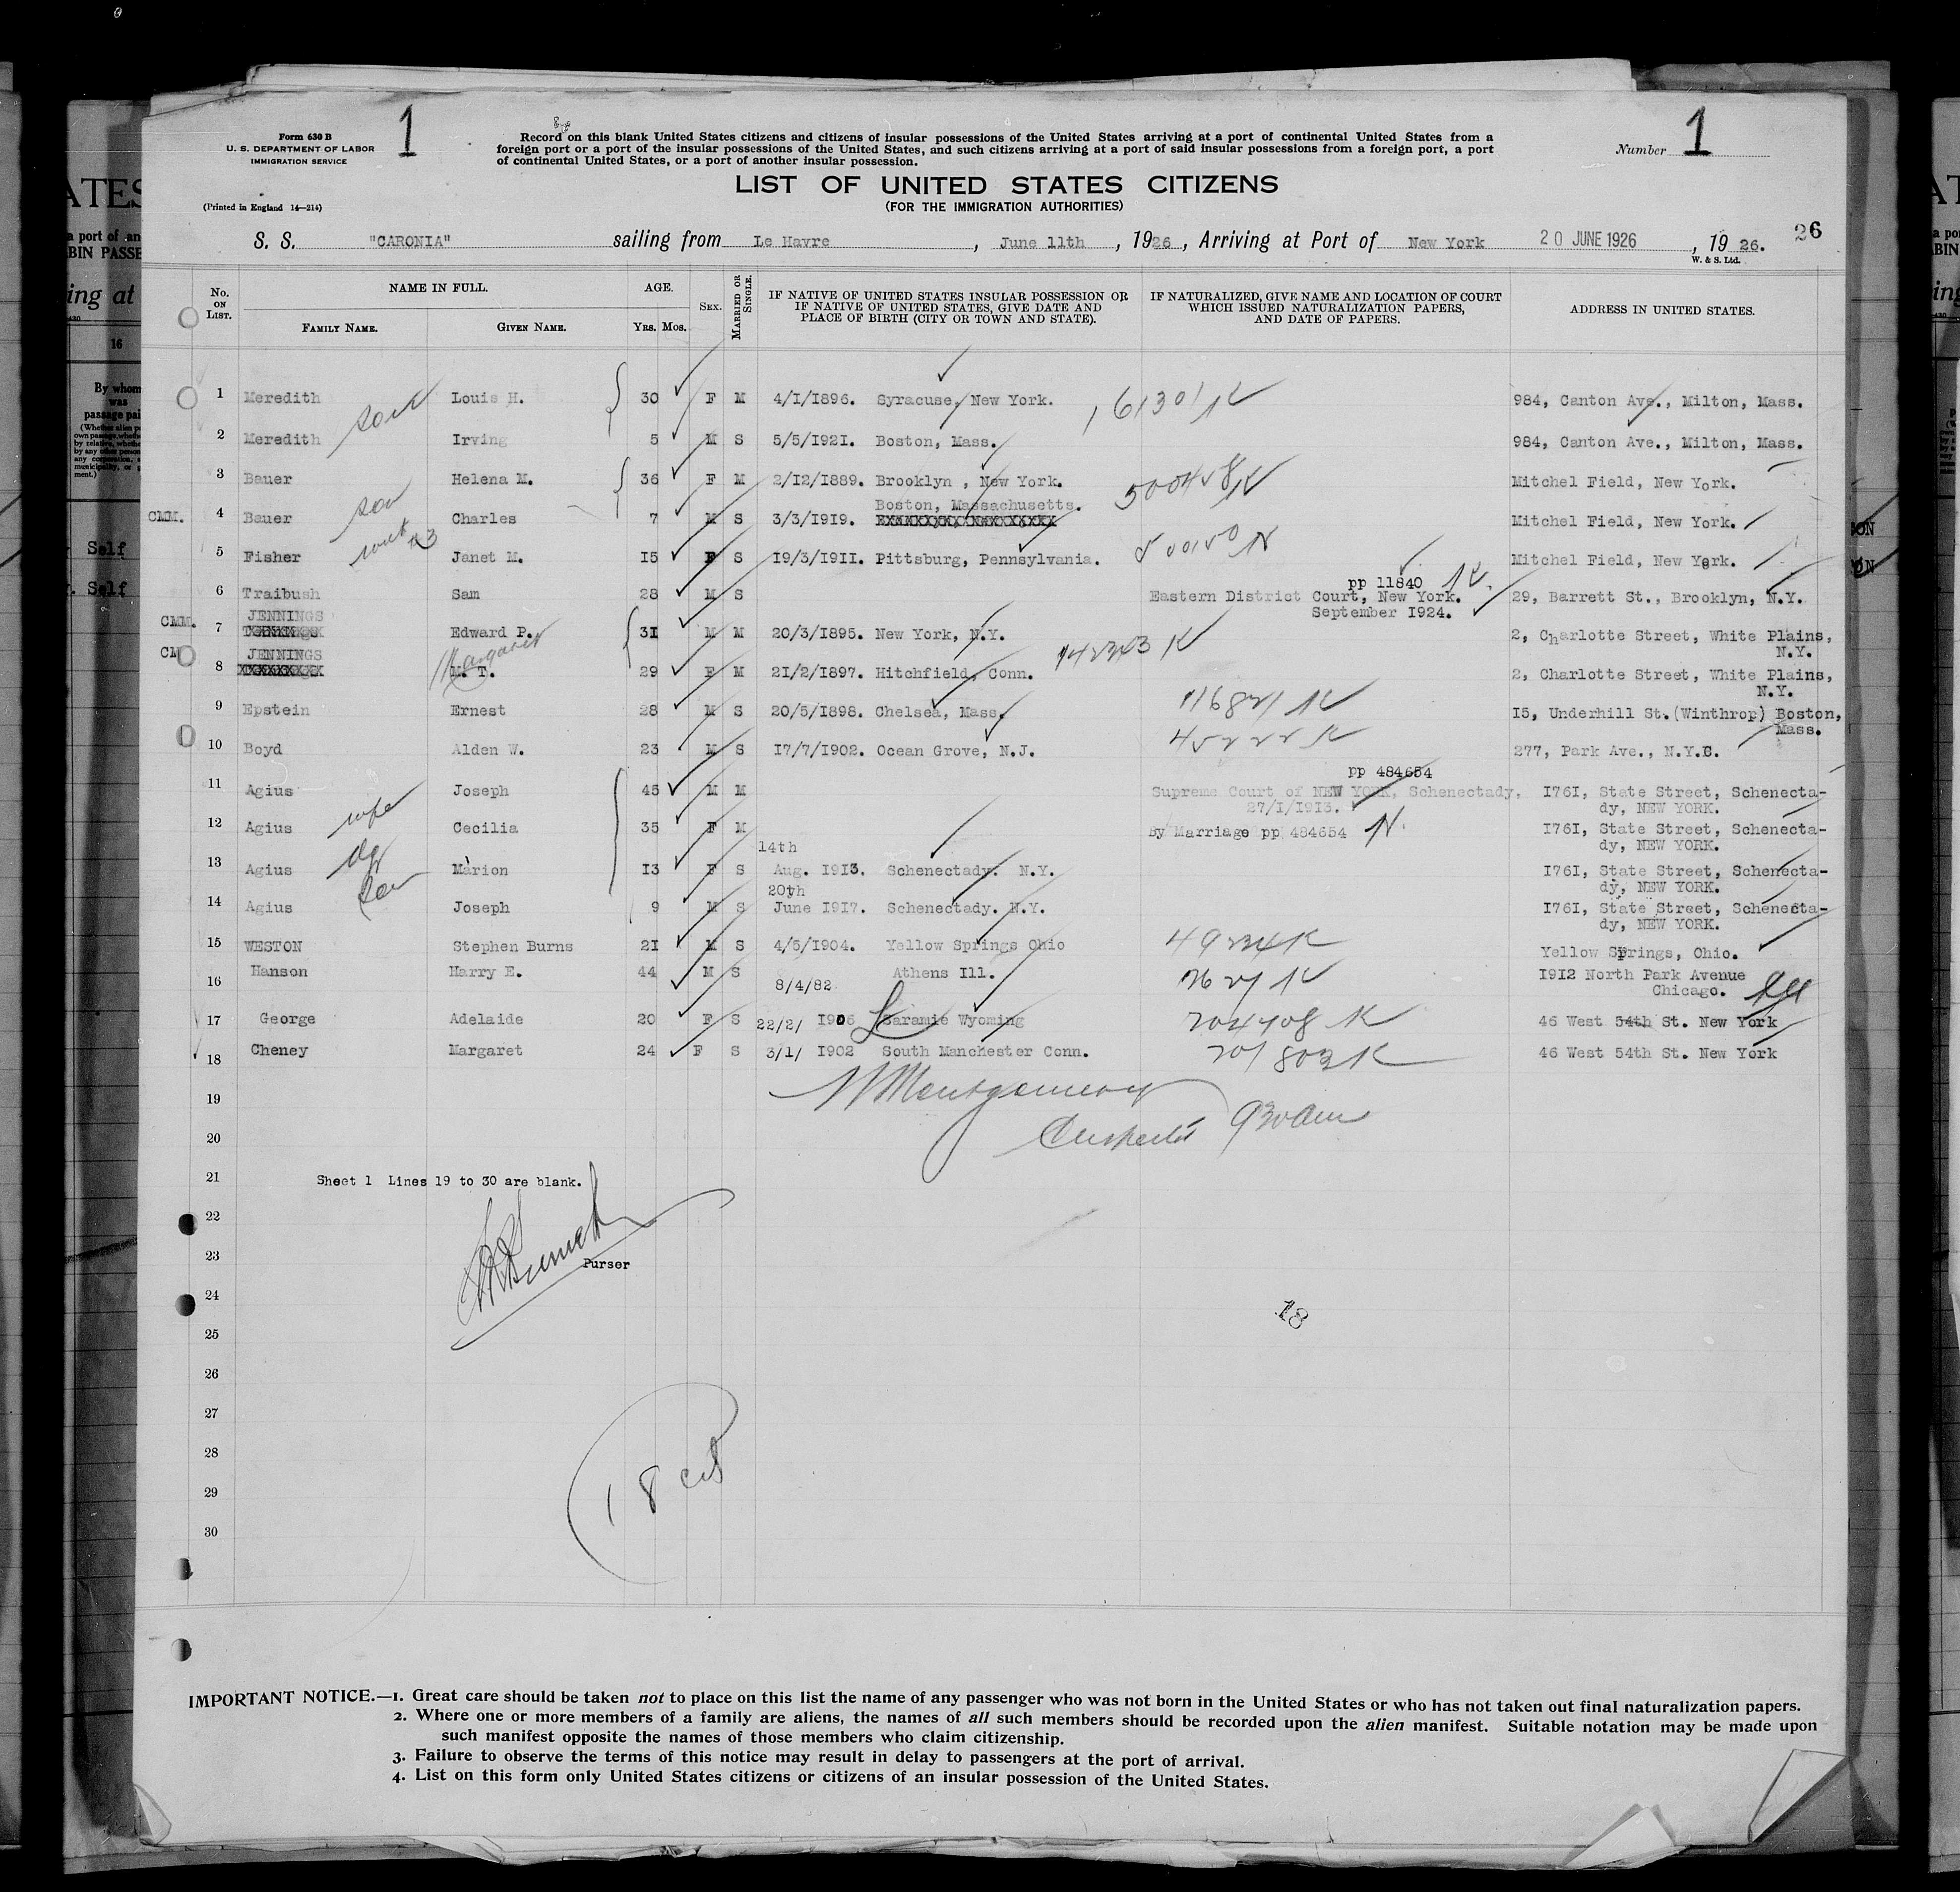 Form 630 B
U. S. DEPARTMENT OF LABOR
IMMIGRATION SERVICE
(Printed in England 14—214)
1
Record on this blank United States citizens and citizens of insular possessions of the United States arriving at a port of continental United States from a
foreign port or a port of the insular possessions of the United States, and such citizens arriving at a port of said insular possessions from a foreign port, a port
of continental United States, or a port of another insular possession.
Number 1
LIST OF UNITED STATES CITIZENS
(FOR THE IMMIGRATION AUTHORITIES)
S. S. "CARONIA" sailing from Le Havre, June 11th, 1926, Arriving at Port of New York 20 JUNE 1926, 19 26.
26
W. & S. Ltd.
No. ON LIST. NAME IN FULL. FAMILY NAME. GIVEN NAME. AGE. Yrs. Mos. SEX. MARRIED OR SINGLE. IF NATIVE OF UNITED STATES INSULAR POSSESSION OR IF NATIVE OF UNITED STATES, GIVE DATE AND PLACE OF BIRTH (CITY OR TOWN AND STATE). IF NATURALIZED, GIVE NAME AND LOCATION OF COURT WHICH ISSUED NATURALIZATION PAPERS, AND DATE OF PAPERS. ADDRESS IN UNITED STATES.
1 Meredith Louis H. 30 F M 4/I/I896. Syracuse, New York. 984, Canton Ave., Milton, Mass.
2 Meredith son Irving 5 M S 5/5/I92I. Boston, Mass. 984, Canton Ave., Milton, Mass.
3 Bauer Helena M. 36 F M 2/I2/I889. Brooklyn , New York. Mitchel Field, New York.
Boston, Massachusetts.
CMM. 4 Bauer son Charles 7 M S 3/3/I9I9. Mitchel Field, New York.
5 Fisher Janet M. I5 F S I9/3/I9II. Pittsburg, Pennsylvania. Mitchel Field, New York.
pp 11840
6 Traibush Sam 28 M S Eastern District Court, New York. 29, Barrett St., Brooklyn, N.Y.
September I924.
JENNINGS
CMM. 7 Edward P. 3I M M 20/3/I895. New York, N.Y. 2, Charlotte Street, White Plains,
N.Y.
JENNINGS Margaret
CM 8 M. T. 29 F M 2I/2/I897. Hitchfield, Conn. 2, Charlotte Street, White Plains,
N.Y.
9 Epstein Ernest 28 M S 20/5/I898. Chelsea, Mass. I5, Underhill St.(Winthrop) Boston,
Mass.
10 Boyd Alden W. 23 M S I7/7/I902. Ocean Grove, N.J. 277, Park Ave., N.Y.C.
pp 484654
11 Agius Joseph 45 M M Supreme Court of NEW YORK, Schenectady, I76I, State Street, Schenecta-
27/I/I9I3. dy, NEW YORK.
12 Agius wife Cecilia 35 F M By Marriage pp 484654 I76I, State Street, Schenecta-
dy, NEW YORK.
14th
13 Agius dg Marion I3 F S Aug. I9I3. Schenectady. N.Y. I76I, State Street, Schenecta-
dy, NEW YORK.
20th
14 Agius son Joseph 9 M S June I9I7. Schenectady. N.Y. I76I, State Street, Schenecta-
dy, NEW YORK.
15 WESTON Stephen Burns 2I M S 4/5/I904. Yellow Springs Ohio Yellow Springs, Ohio.
16 Hanson Harry E. 44 M S 8/4/82 Athens Ill. I9I2 North Park Avenue
Chicago.
17 George Adelaide 20 F S 22/2/ I906 Laramie Wyoming 46 West 54th St. New York
18 Cheney Margaret 24 F S 3/1/ I902 South Manchester Conn. 46 West 54th St. New York
19
Montgomery
20
930 am
21
Sheet 1 Lines 19 to 30 are blank.
22
23
Purser
24
18
25
26
27
28
29
18 cit
30
IMPORTANT NOTICE.—1. Great care should be taken not to place on this list the name of any passenger who was not born in the United States or who has not taken out final naturalization papers.
2. Where one or more members of a family are aliens, the names of all such members should be recorded upon the alien manifest. Suitable notation may be made upon
such manifest opposite the names of those members who claim citizenship.
3. Failure to observe the terms of this notice may result in delay to passengers at the port of arrival.
4. List on this form only United States citizens or citizens of an insular possession of the United States.